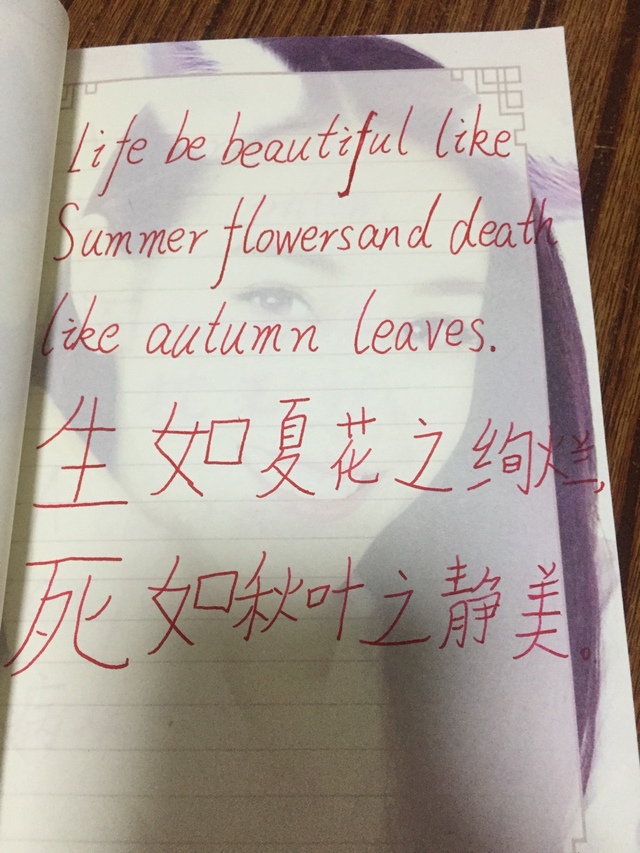 Life be beautiful like
Summer flowersand death
like autumn leaves.
生如夏花之绚烂,
死如秋叶之静美。